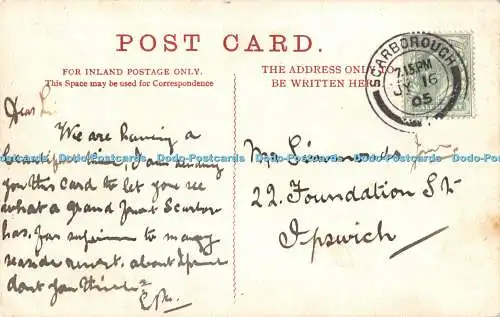 POST CARD.
FOR INLAND POSTAGE ONLY.
This Space may be used for Correspondence
THE ADDRESS ONLY TO
BE WRITTEN HERE
SCARBOROUGH
7.15 PM
JY 16
05
Dear
We are having a
beautiful time, I am sending
you this card to let you see
what a grand front Scarboro
has. far superior to many
seaside resort. about Ipswich
dont you think?
Mr Simmonds Junr
22. Foundation St
Ipswich
Dodo-Postcards Dodo-Postcards Dodo-Postcards Dodo-Postcards Dodo-Postcards Dodo-Postcards